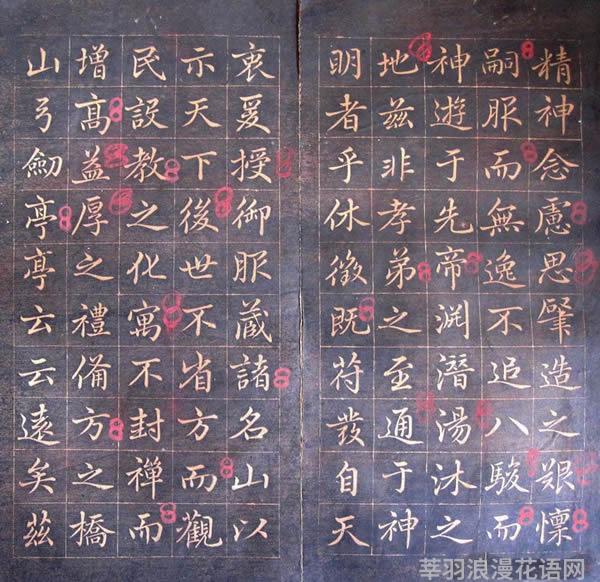 精神念慮思肇造之艱懍
嗣服而無逸不追八駿而
神遊于先帝渊潛湯沐之
地兹非孝弟之至通于神
明者乎休徵既符發自天
衷爰授御服藏諸名山以
示天下後世不省方而觀
民設教之化寓不封禪而
增髙益厚之禮備方之橋
山弓劒亭亭云云遠矣兹
莘羽浪漫花语网